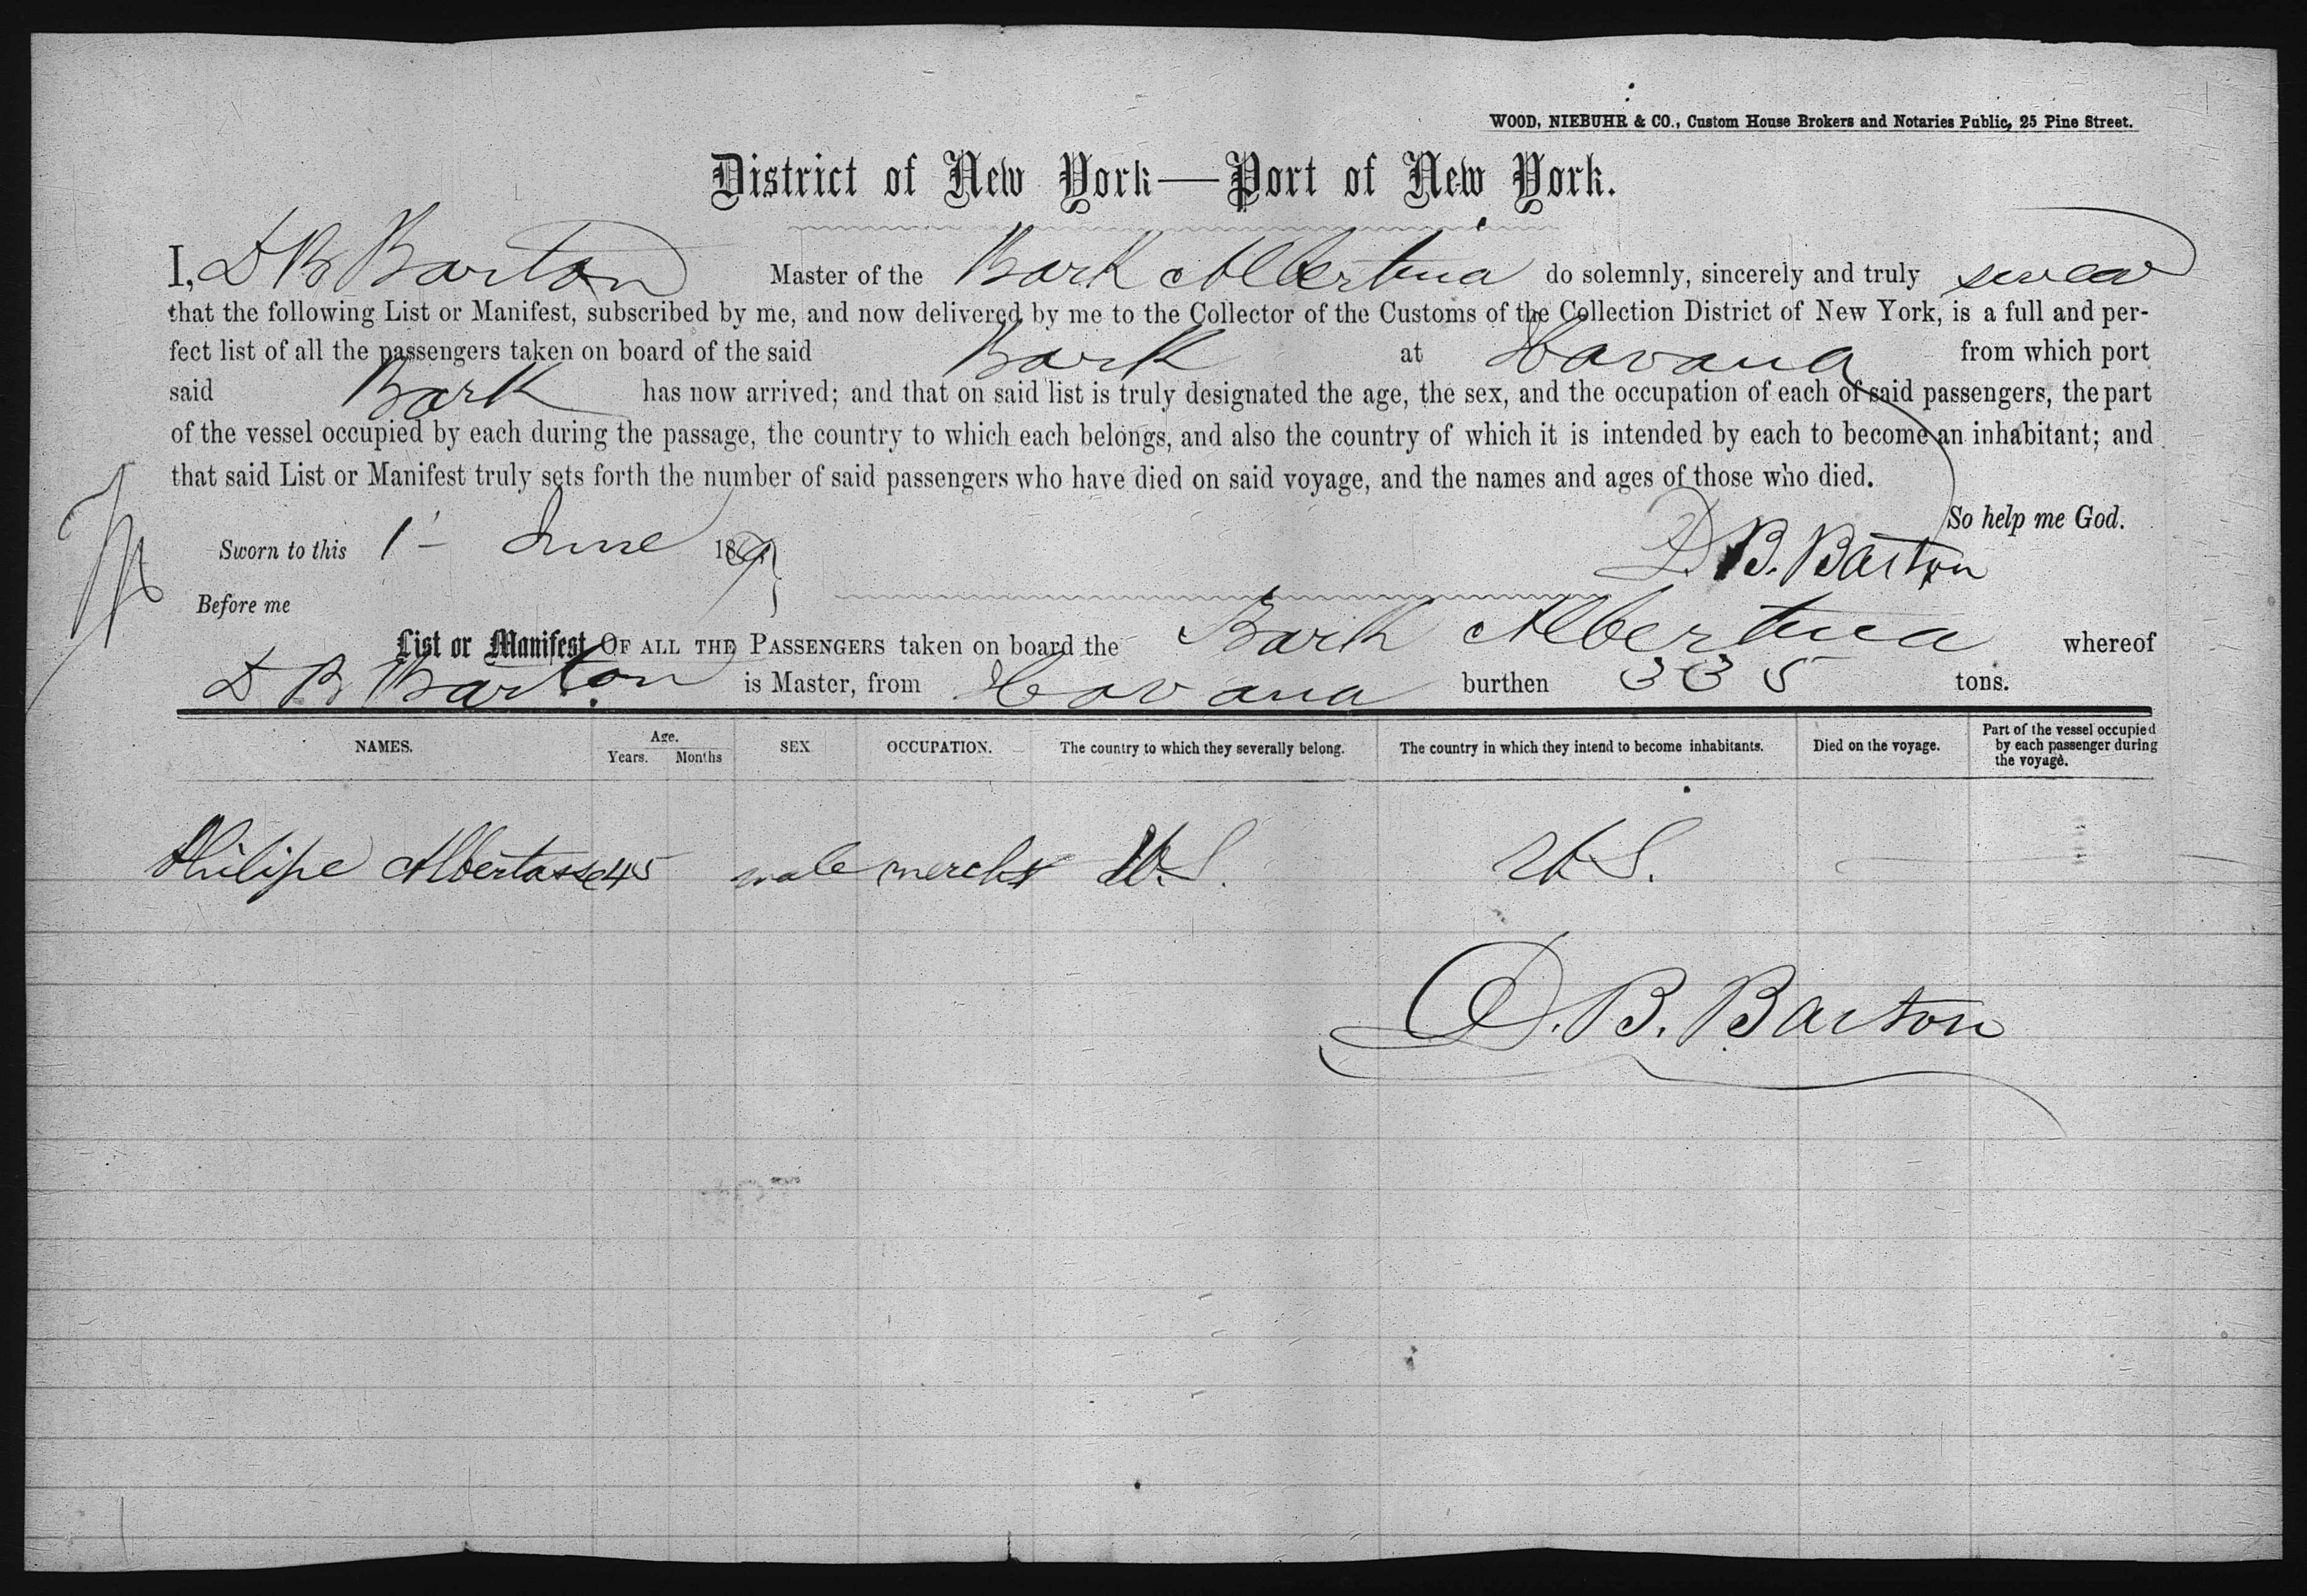 WOOD, NIEBUHR & CO., Custom House Brokers and Notaries Public, 25 Pine Street.
District of New York—Port of New York.
I, D B Barton Master of the Bark Albertina do solemnly, sincerely and truly swear
that the following List or Manifest, subscribed by me, and now delivered by me to the Collector of the Customs of the Collection District of New York, is a full and per-
fect list of all the passengers taken on board of the said Bark at Havana from which port
said Bark has now arrived; and that on said list is truly designated the age, the sex, and the occupation of each of said passengers, the part
of the vessel occupied by each during the passage, the country to which each belongs, and also the country of which it is intended by each to become an inhabitant; and
that said List or Manifest truly sets forth the number of said passengers who have died on said voyage, and the names and ages of those who died.
So help me God.
Sworn to this 1 - June D. B. Barton
Before me
List or Manifest OF ALL THE PASSENGERS taken on board the Bark Albertina whereof
D B Barton is Master, from Havana burthen 335 tons.
NAMES. Age. Years. Months SEX OCCUPATION. The country to which they severally belong. The country in which they intend to become inhabitants. Died on the voyage. Part of the vessel occupied by each passenger during the voyage.
Philipe 45 male mercht U.S. U.S.
D. B. Barton